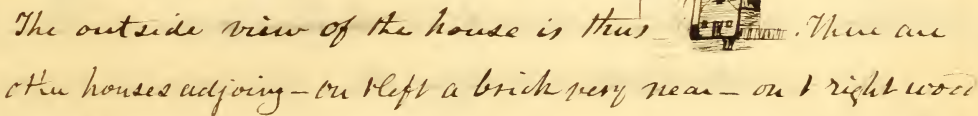 The outside view of the house is thus . There are
other houses adjoing – on t left a brick very near – on t right wood